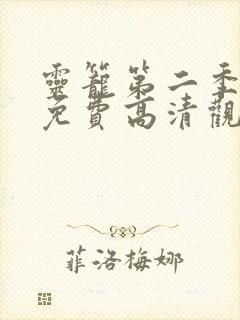 靈籠第二季
免費高清觀
菲洛梅娜